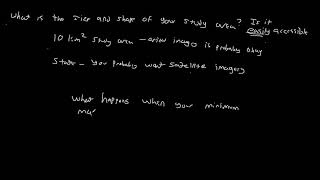 What is the size and shape of your study area? Is it easily accessible
10 km² study area - aerial image is probably okay
State - you probably want satellite imagery
What happens when your minimum
ma